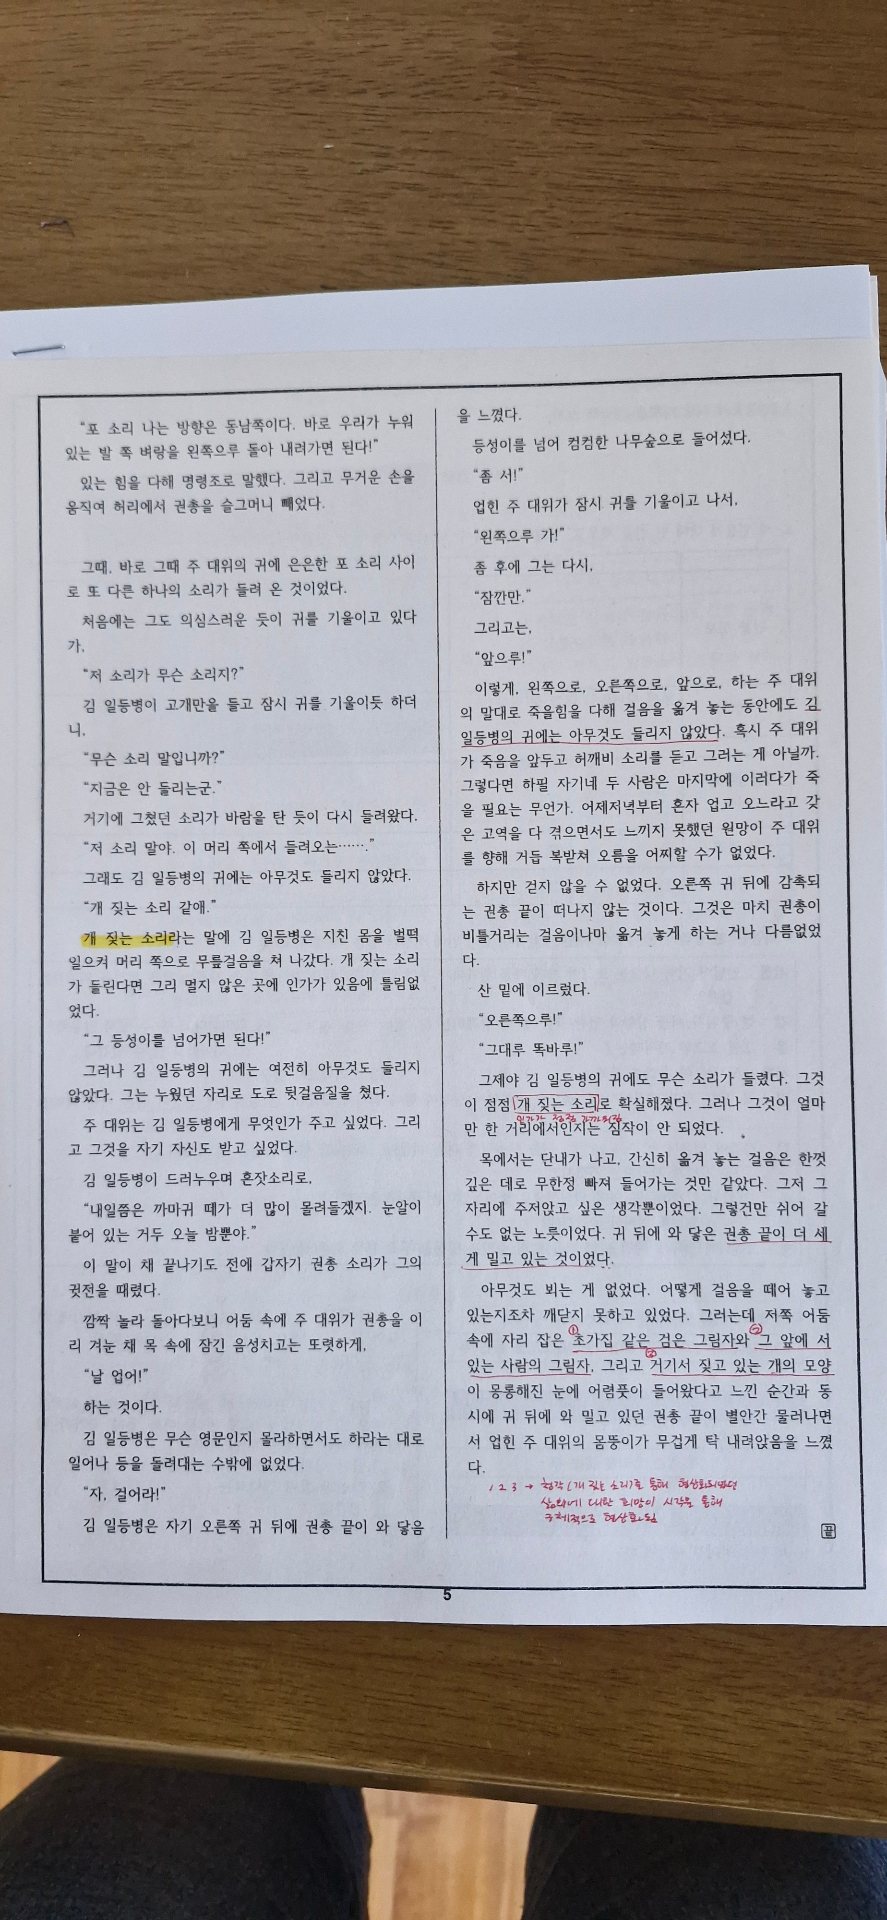 “포 소리 나는 방향은 동남쪽이다. 바로 우리가 누워
있는 발 쪽 벼랑을 왼쪽으루 돌아 내려가면 된다!”
있는 힘을 다해 명령조로 말했다. 그리고 무거운 손을
움직여 허리에서 권총을 슬그머니 빼었다.
그때, 바로 그때 주 대위의 귀에 은은한 포 소리 사이
로 또 다른 하나의 소리가 들려 온 것이었다.
처음에는 그도 의심스러운 듯이 귀를 기울이고 있다
가,
“저 소리가 무슨 소리지?”
김 일등병이 고개만을 들고 잠시 귀를 기울이듯 하더
니,
“무슨 소리 말입니까?”
“지금은 안 들리는군.”
거기에 그쳤던 소리가 바람을 탄 듯이 다시 들려왔다.
“저 소리 말야. 이 머리 쪽에서 들려오는…….”
그래도 김 일등병의 귀에는 아무것도 들리지 않았다.
“개 짖는 소리 같애.”
개 짖는 소리라는 말에 김 일등병은 지친 몸을 벌떡
일으켜 머리 쪽으로 무릎걸음을 쳐 나갔다. 개 짖는 소리
가 들린다면 그리 멀지 않은 곳에 인가가 있음에 틀림없
었다.
“그 등성이를 넘어가면 된다!”
그러나 김 일등병의 귀에는 여전히 아무것도 들리지
않았다. 그는 누웠던 자리로 도로 뒷걸음질을 쳤다.
주 대위는 김 일등병에게 무엇인가 주고 싶었다. 그리
고 그것을 자기 자신도 받고 싶었다.
김 일등병이 드러누우며 혼잣소리로,
“내일쯤은 까마귀 떼가 더 많이 몰려들겠지. 눈알이
붙어 있는 거두 오늘 밤뿐야.”
이 말이 채 끝나기도 전에 갑자기 권총 소리가 그의
귓전을 때렸다.
깜짝 놀라 돌아다보니 어둠 속에 주 대위가 권총을 이
리 겨눈 채 목 속에 잠긴 음성치고는 또렷하게,
“날 업어!”
하는 것이다.
김 일등병은 무슨 영문인지 몰라하면서도 하라는 대로
일어나 등을 돌려대는 수밖에 없었다.
“자, 걸어라!”
김 일등병은 자기 오른쪽 귀 뒤에 권총 끝이 와 닿음
을 느꼈다.
등성이를 넘어 컴컴한 나무숲으로 들어섰다.
“좀 서!”
업힌 주 대위가 잠시 귀를 기울이고 나서,
“왼쪽으루 가!”
좀 후에 그는 다시,
“잠깐만.”
그리고는,
“앞으루!”
이렇게, 왼쪽으로, 오른쪽으로, 앞으로, 하는 주 대위
의 말대로 죽을힘을 다해 걸음을 옮겨 놓는 동안에도 김
일등병의 귀에는 아무것도 들리지 않았다. 혹시 주 대위
가 죽음을 앞두고 허깨비 소리를 듣고 그러는 게 아닐까.
그렇다면 하필 자기네 두 사람은 마지막에 이러다가 죽
을 필요는 무언가. 어제저녁부터 혼자 업고 오느라고 갖
은 고역을 다 겪으면서도 느끼지 못했던 원망이 주 대위
를 향해 거듭 복받쳐 오름을 어찌할 수가 없었다.
하지만 걷지 않을 수 없었다. 오른쪽 귀 뒤에 감촉되
는 권총 끝이 떠나지 않는 것이다. 그것은 마치 권총이
비틀거리는 걸음이나마 옮겨 놓게 하는 거나 다름없었
다.
산 밑에 이르렀다.
“오른쪽으루!”
“그대루 똑바루!”
그제야 김 일등병의 귀에도 무슨 소리가 들렸다. 그것
이 점점 개 짖는 소리로 확실해졌다. 그러나 그것이 얼마
인가가 점점 가까워짐
만 한 거리에서인지는 짐작이 안 되었다.
목에서는 단내가 나고, 간신히 옮겨 놓는 걸음은 한껏
깊은 데로 무한정 빠져 들어가는 것만 같았다. 그저 그
자리에 주저앉고 싶은 생각뿐이었다. 그렇건만 쉬어 갈
수도 없는 노릇이었다. 귀 뒤에 와 닿은 권총 끝이 더 세
게 밀고 있는 것이었다.
아무것도 뵈는 게 없었다. 어떻게 걸음을 떼어 놓고
있는지조차 깨닫지 못하고 있었다. 그러는데 저쪽 어둠
속에 자리 잡은 ①초가집 같은 검은 그림자와 ②그 앞에 서
있는 사람의 그림자, 그리고 ③거기서 짖고 있는 개의 모양
이 몽롱해진 눈에 어렴풋이 들어왔다고 느낀 순간과 동
시에 귀 뒤에 와 밀고 있던 권총 끝이 별안간 물러나면
서 업힌 주 대위의 몸뚱이가 무겁게 탁 내려앉음을 느꼈
다.
1 2 3 → 청각(개 짖는 소리)을 통해 형상화되었던
삶의에 대한 희망이 시각을 통해
구체적으로 형상화됨
끝
5